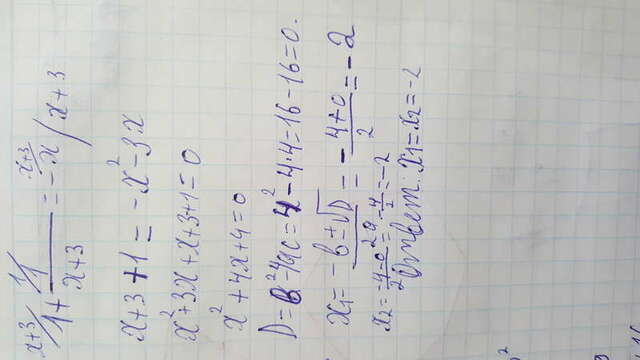 x+3/ 1 + 1/ / x+3 = x+3/ -x / x+3
x+3+1 = -x² - 3x
x²+3x+x+3+1=0
x²+4x+4=0
D=b²-4ac=4²-4·4=16-16=0.
x₁= -b±√D / 2a = -4+0 / 2 = -2
x₂= -4-0 / 2 = -4/2 = -2
Ответ: x₁=x₂=-2